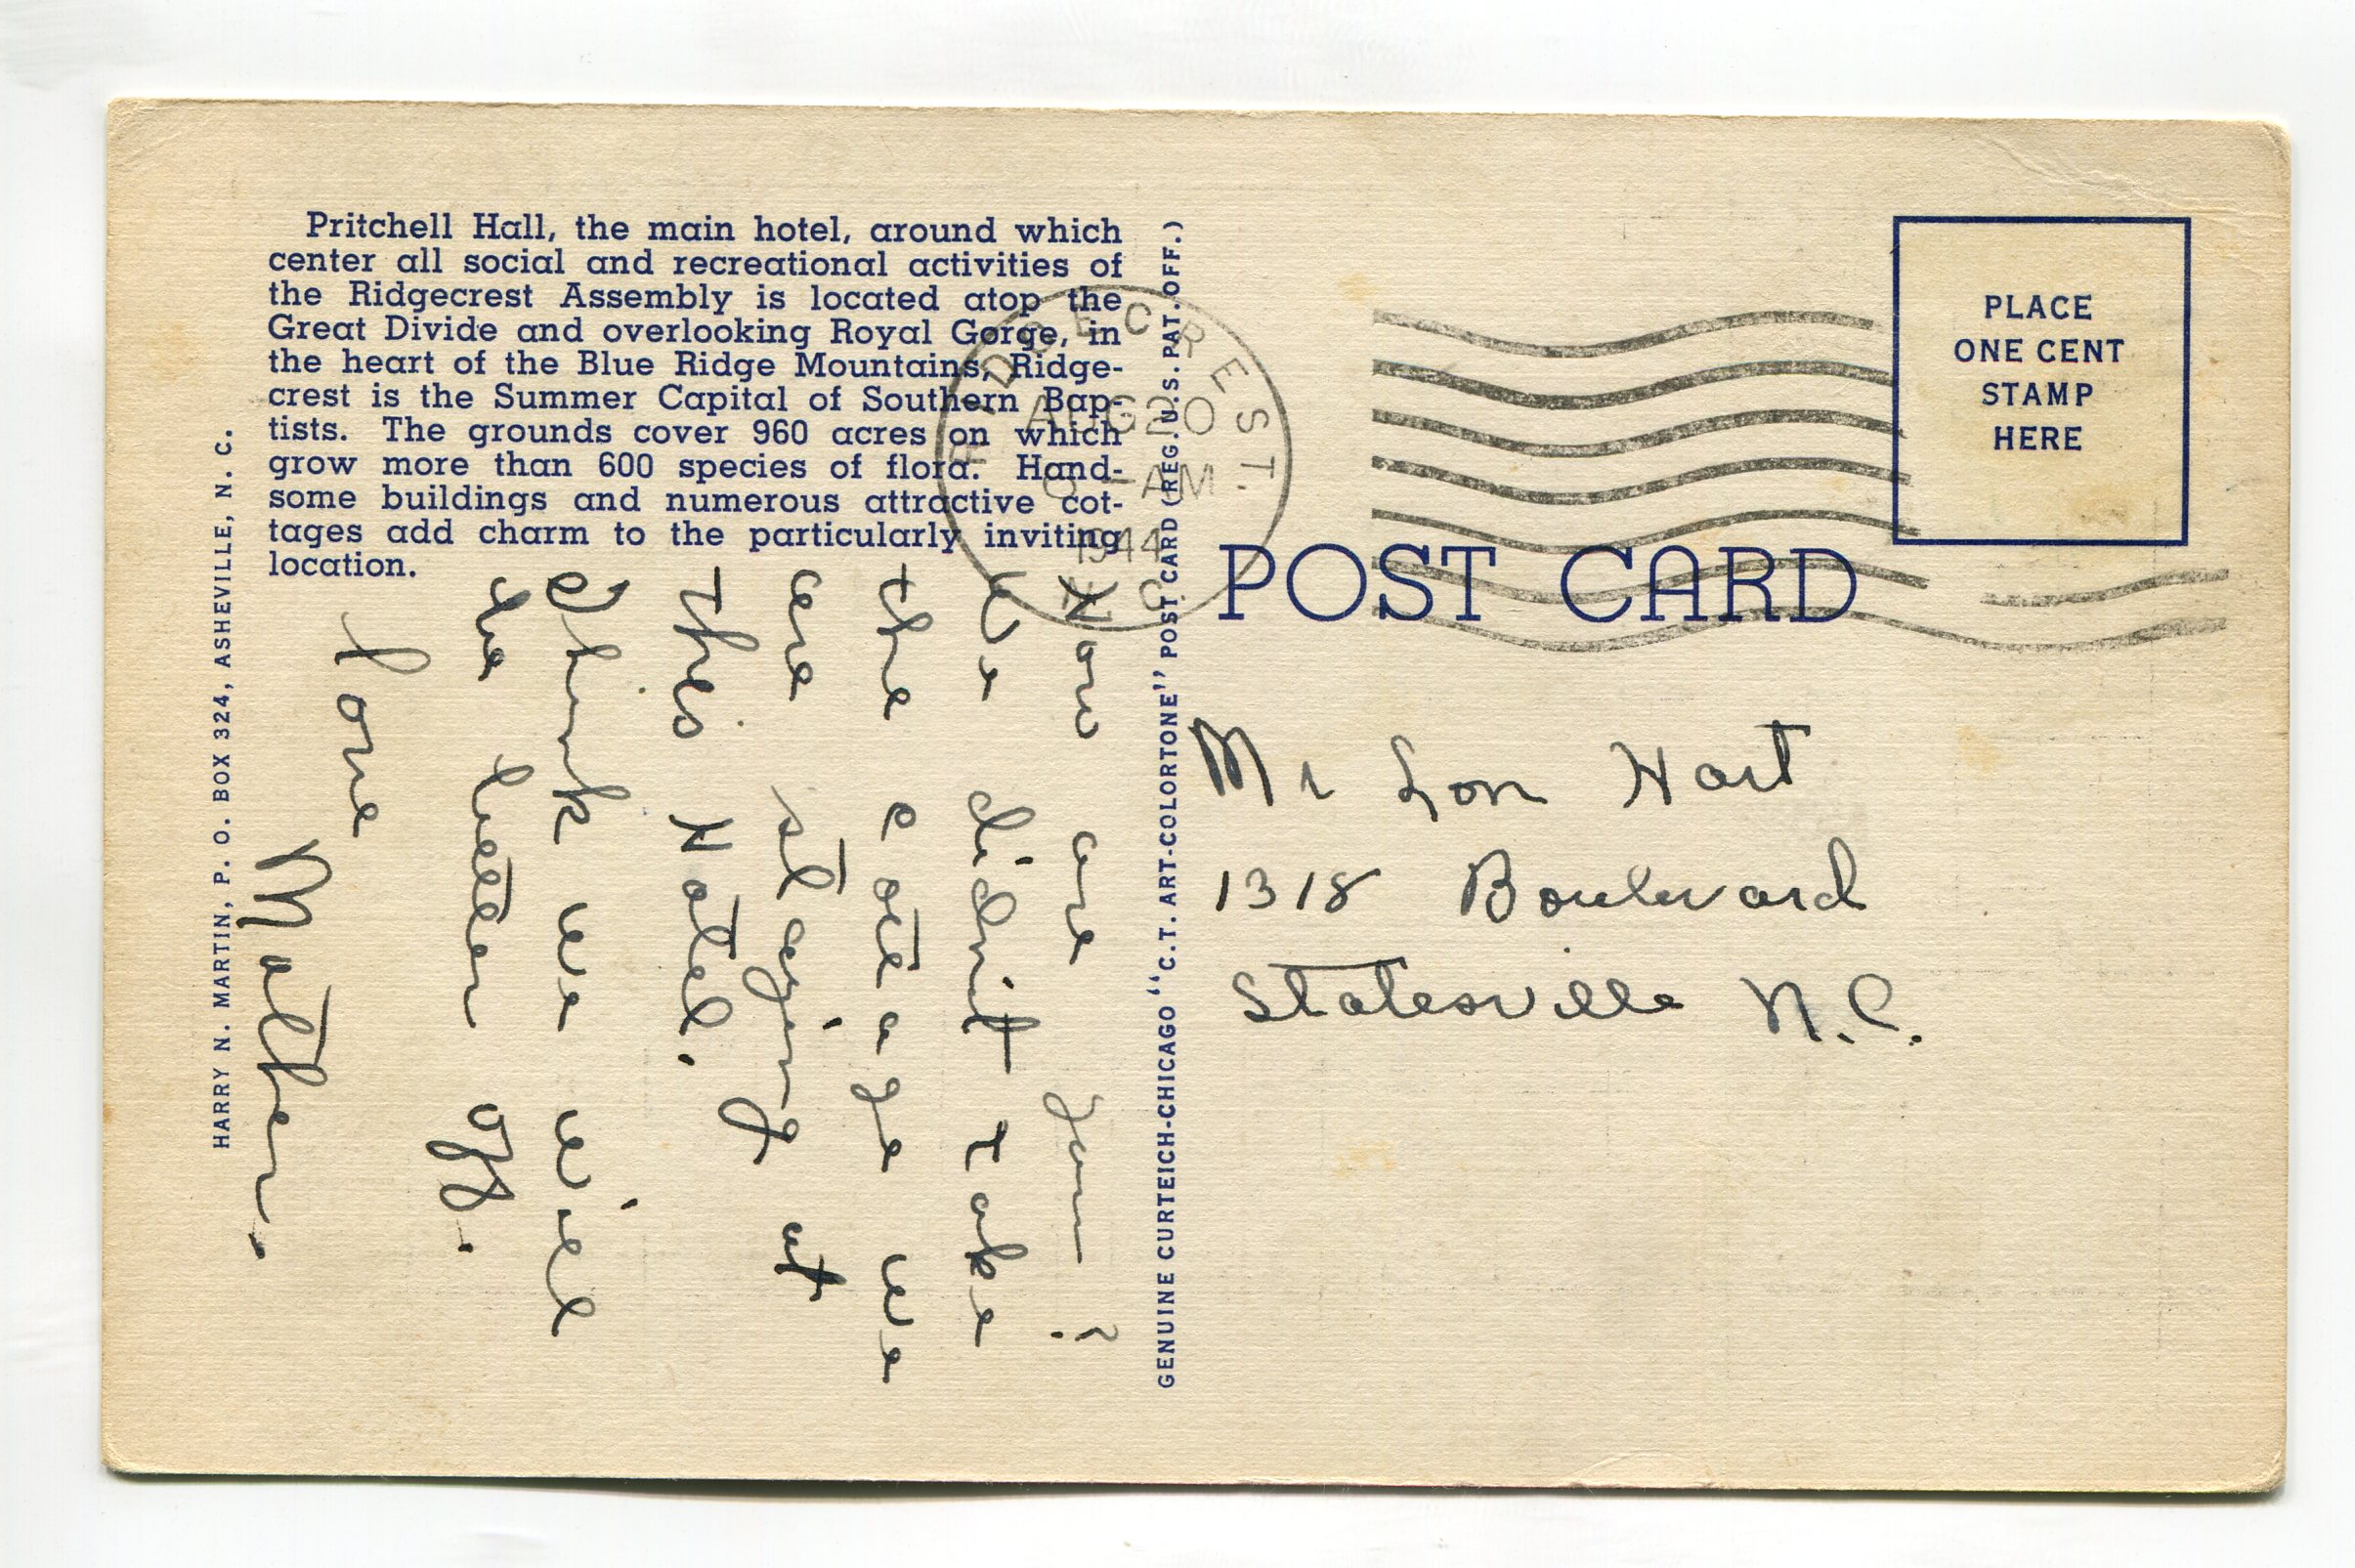 Pritchell Hall, the main hotel, around which
center all social and recreational activities of
the Ridgecrest Assembly is located atop the
Great Divide and overlooking Royal Gorge, in
the heart of the Blue Ridge Mountains, Ridge-
crest is the Summer Capital of Southern Bap-
tists. The grounds cover 960 acres on which
grow more than 600 species of flora. Hand-
some buildings and numerous attractive cot-
tages add charm to the particularly inviting
location.
HARRY N. MARTIN, P. O. BOX 324, ASHEVILLE, N. C.
How are you?
We didnit take
the cottage we
are staying at
this Hotel.
Think we will
be better off.
Love
Mother.
GENUINE CURTEICH-CHICAGO "C.T. ART-COLORTONE" POST CARD (REG. U.S. PAT. OFF.)
RIDGECREST.
AUG 20
AM
1944
N C
PLACE
ONE CENT
STAMP
HERE
POST CARD
Mr Lon Hart
1318 Boulevard
Statesville N.C.